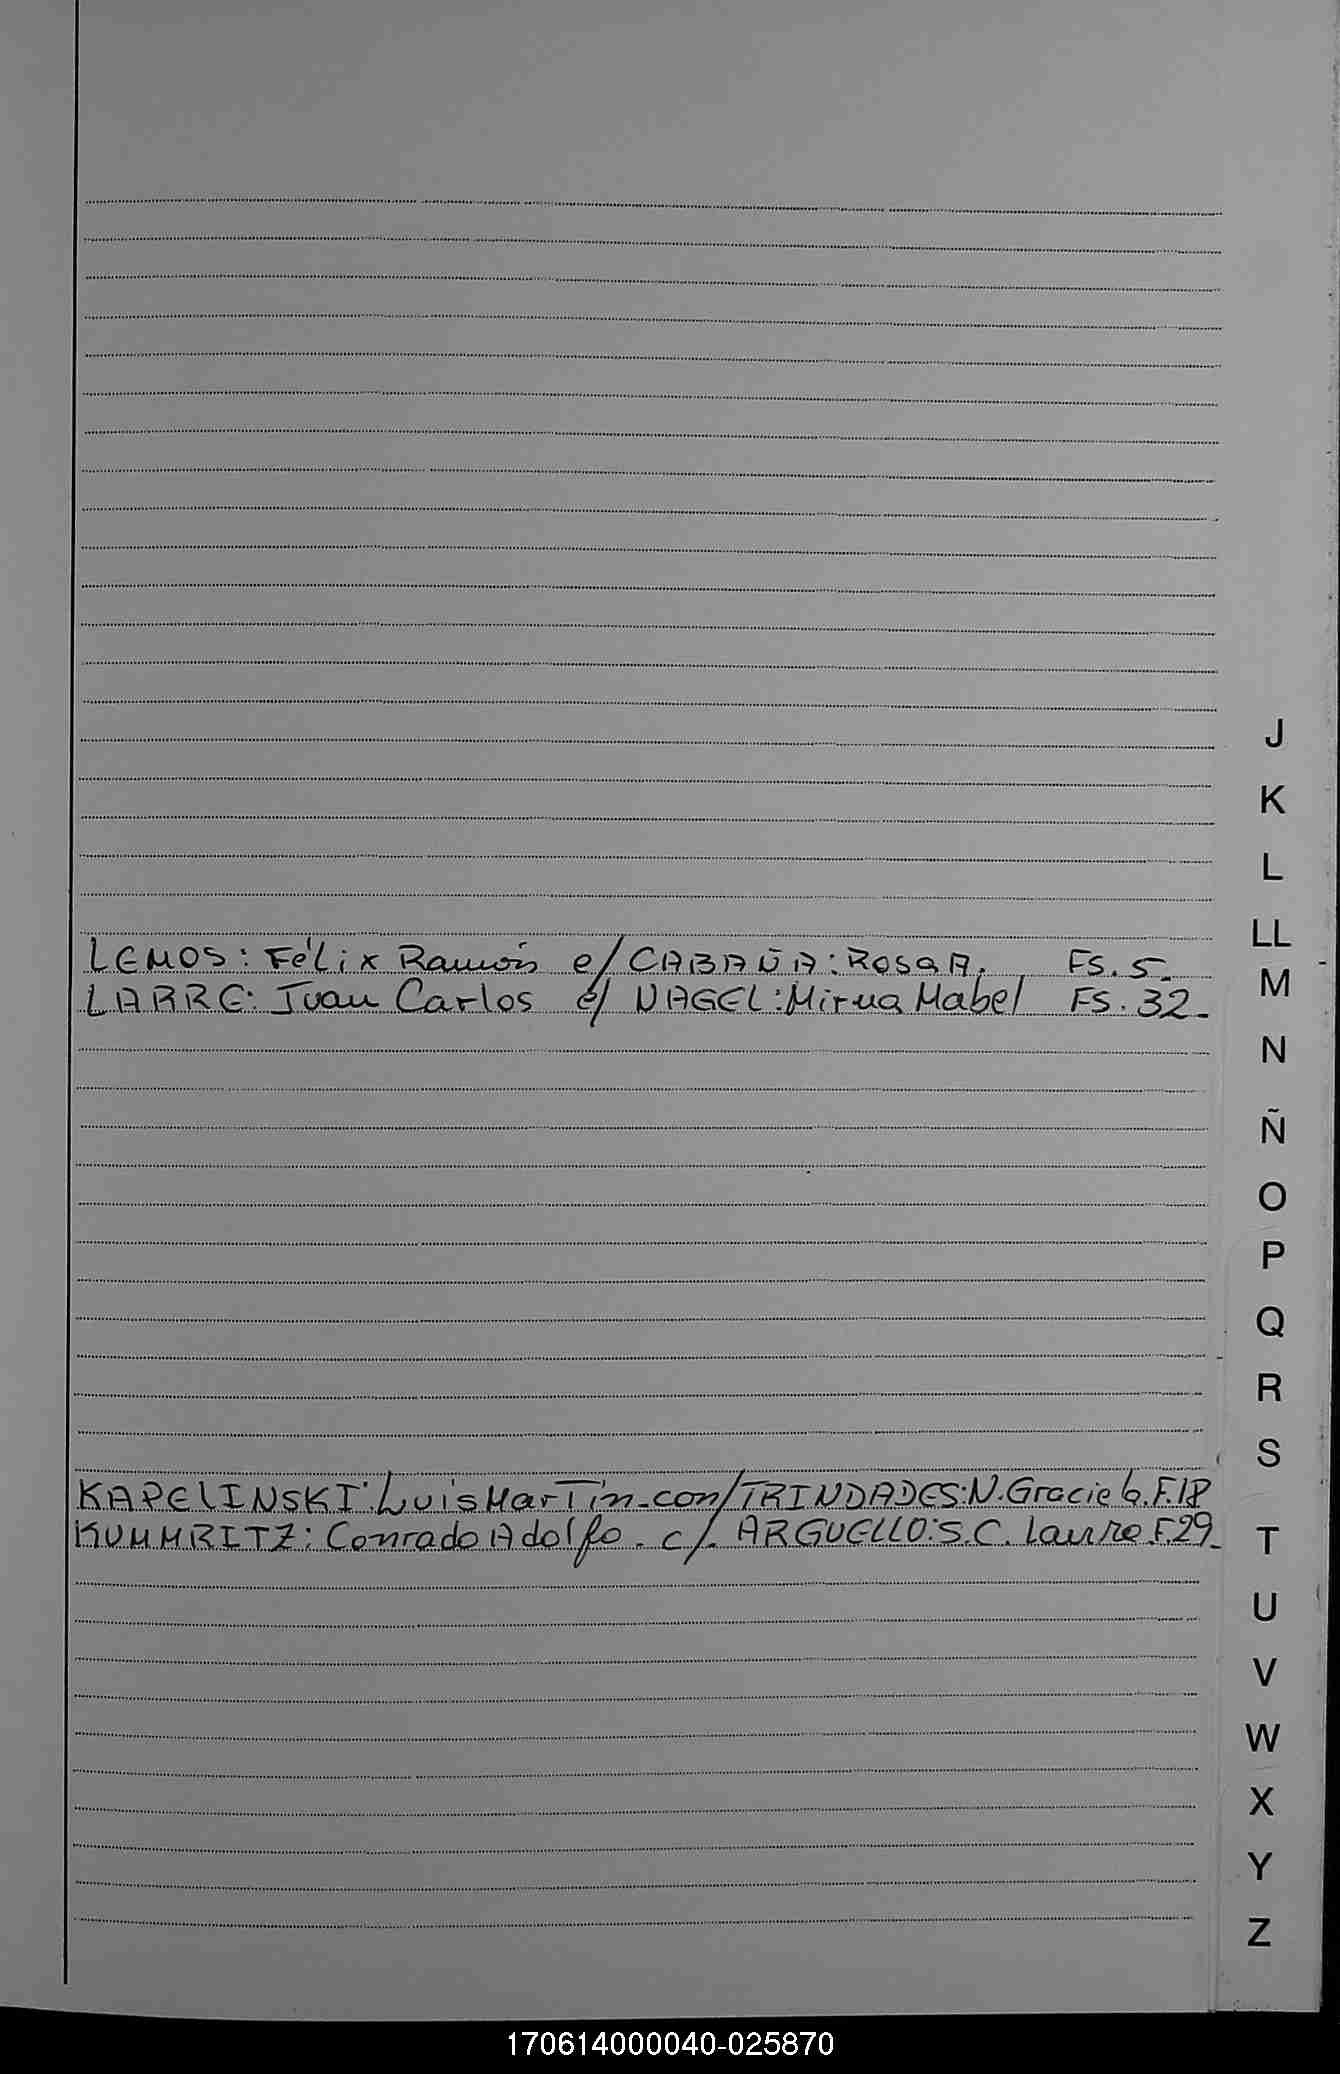 LEMOS: Félix Ramón c/ CABAÑA: ROSA A. FS. 5.
LARRE: Juan Carlos c/ NAGEL: Mirna Mabel FS. 32.
KAPELINSKI: Luis Martín. con/ TRINDADES: N. Graciela. F. 18
KUMMRITZ: Conrado Adolfo. c/. ARGUELLO: S. C. Laura F. 29.
J
K
L
LL
M
N
Ñ
O
P
Q
R
S
T
U
V
W
X
Y
Z
170614000040-025870